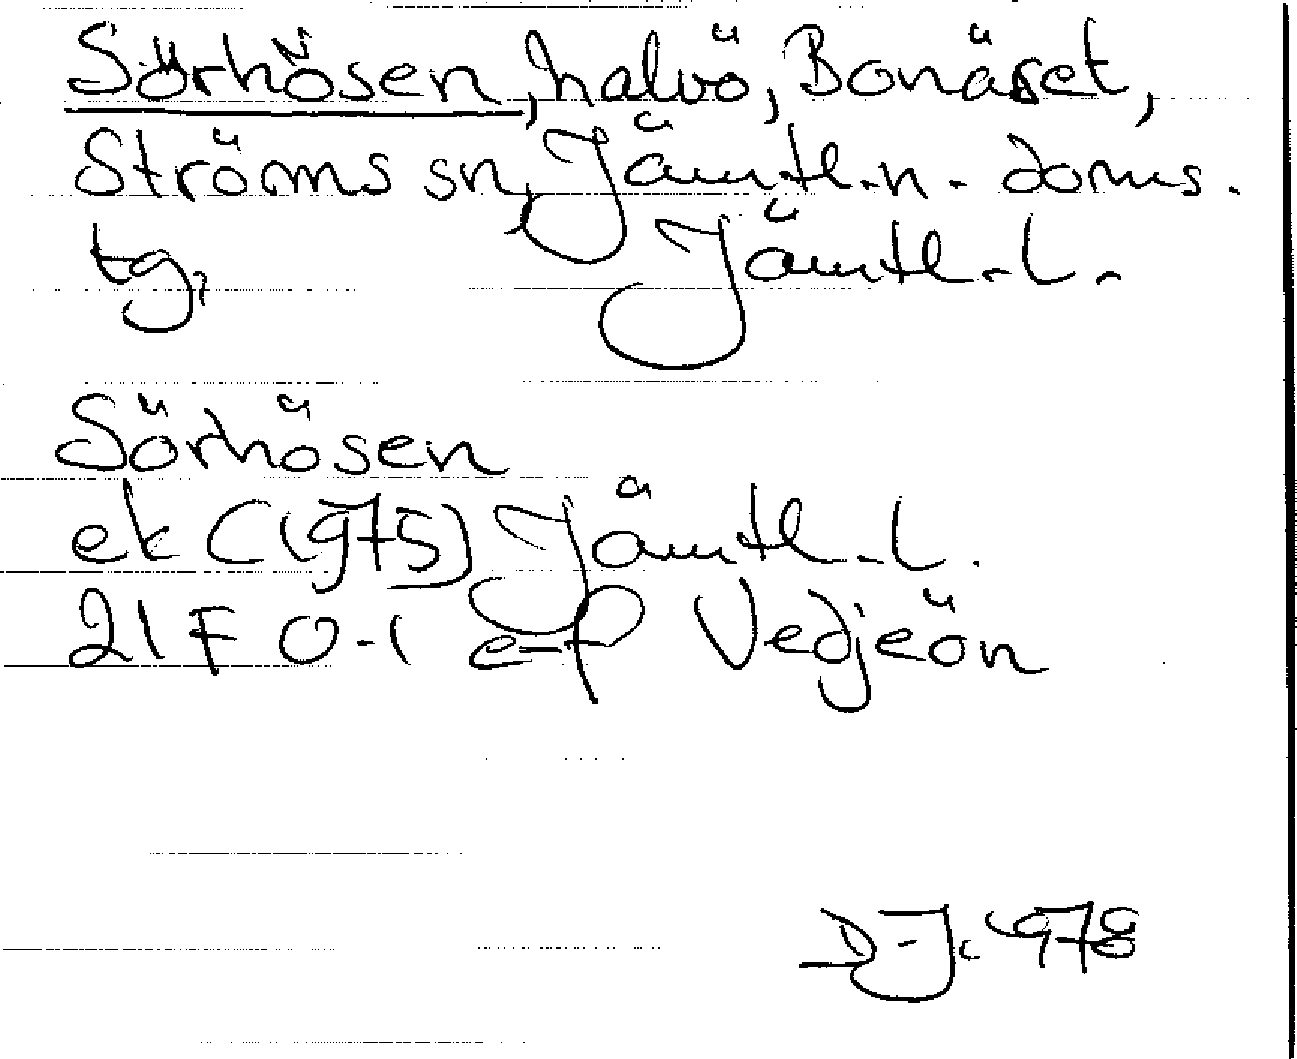 Sörhösen, halvö, Bonäset,
Ströms sn, Jämtl.n. doms.
tg, Jämtl. l.
Sörhösen
ek (1975) Jämtl. l.
21F 0-1 e-f Vedjeön
D-J. 1978